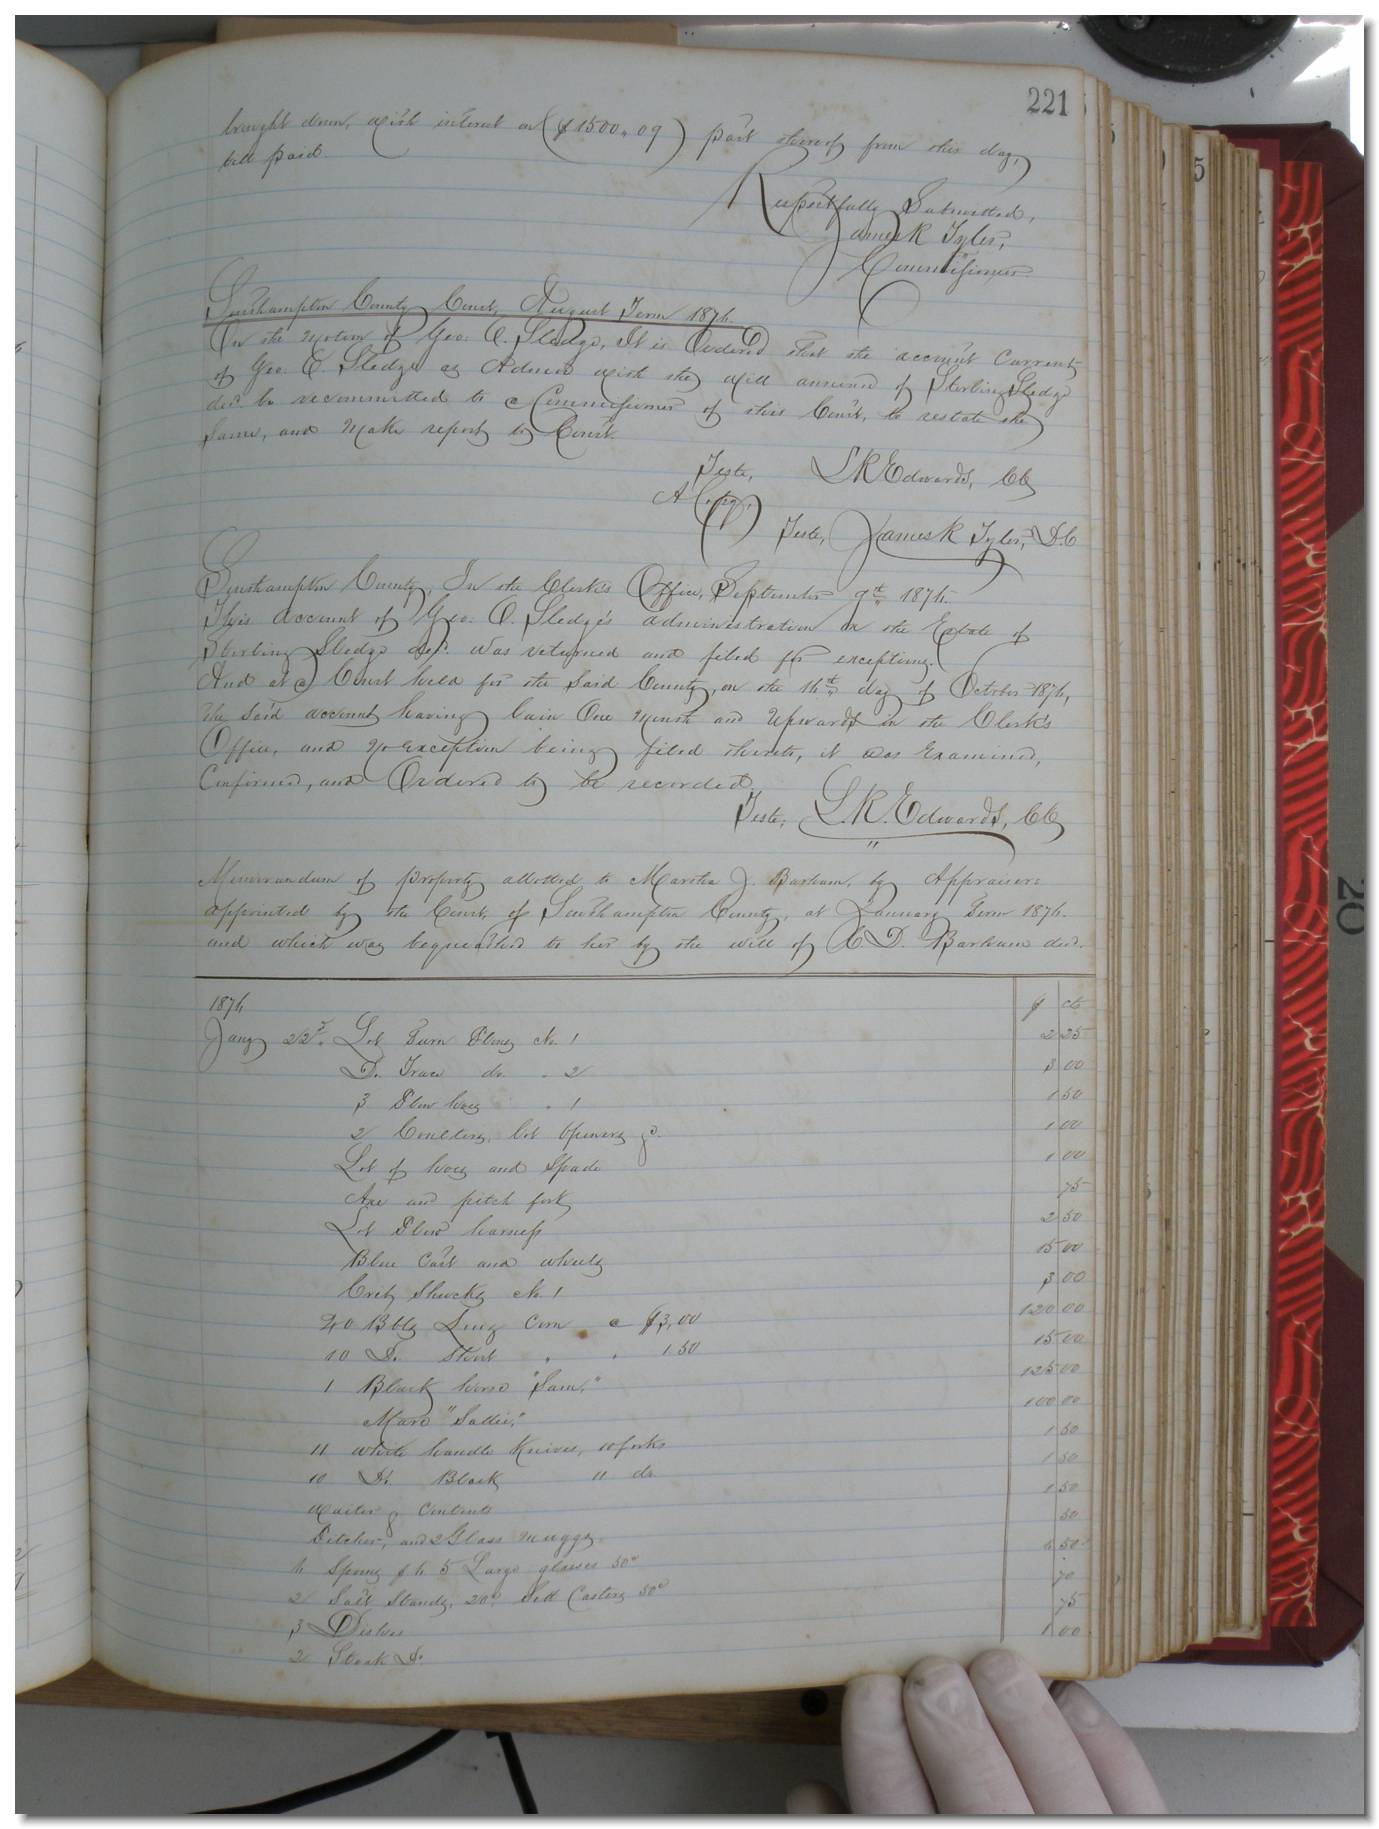 221
brought down, with interest on ($1500.09) part thereof from this day,
till paid.
Respectfully Submitted,
James K Tyler,
Commissioner
Southampton County Court, August Term 1874.
On the motion of Geo. O. Sledge, It is Ordered that the account Current
of Geo. O. Sledge as Admor with the will annexed of Sterling Sledge
decd. be recommitted to a Commissioner of this Court, to restate the
same, and make report to Court.
Teste, L R Edwards, CC
A Copy,
Teste, James K Tyler, D.C
Southampton County, In the Clerk's Office, September 9th 1874.
This account of Geo. O. Sledge's administration on the Estate of
Sterling Sledge decd. was returned and filed for exceptions.
And at a Court held for the said County, on the day of October 1874,
the said account having lain One month and upwards in the Clerk's
Office, and no exception being filed thereto, it was Examined,
Confirmed, and Ordered to be recorded.
Teste, L. R. Edwards, CC
Memorandum of property allotted to Martha J. Barham, by Appraisers
appointed by the Court of Southampton County, at January Term 1874.
and which was bequeathed to her by the will of D. Barham decd.
1874 $ cts
Jany 22d. Lot Turn Plows No. 1 2 25
D. Trace do. " 2 3 00
3 Plow hoes " 1 1 50
2 Coulters, lot &c. 1 00
Lot of hoes and Spade 1 00
Axe and pitch fork 75
Lot Plow harness 2 50
Blue Cart and wheels 15 00
Crib Shucks No. 1 3 00
40 Bbls Long Corn @ $3,00 120 00
10 D. Short " " 1 50 15 00
1 Black horse "Sam," 125 00
Mare "Sallie," 100 00
11 white handle Knives, 10 forks 1 50
10 D. Black " do 1 50
Waiter & Contents 1 50
Pitcher, and 2 Glass muggs 50
4 Spoons $4 5 Large glasses 50c 4 50
2 Salt Stands, 20c, Sett Castors 50c 70
3 Dishes 75
2 Steak D. 1 00
20